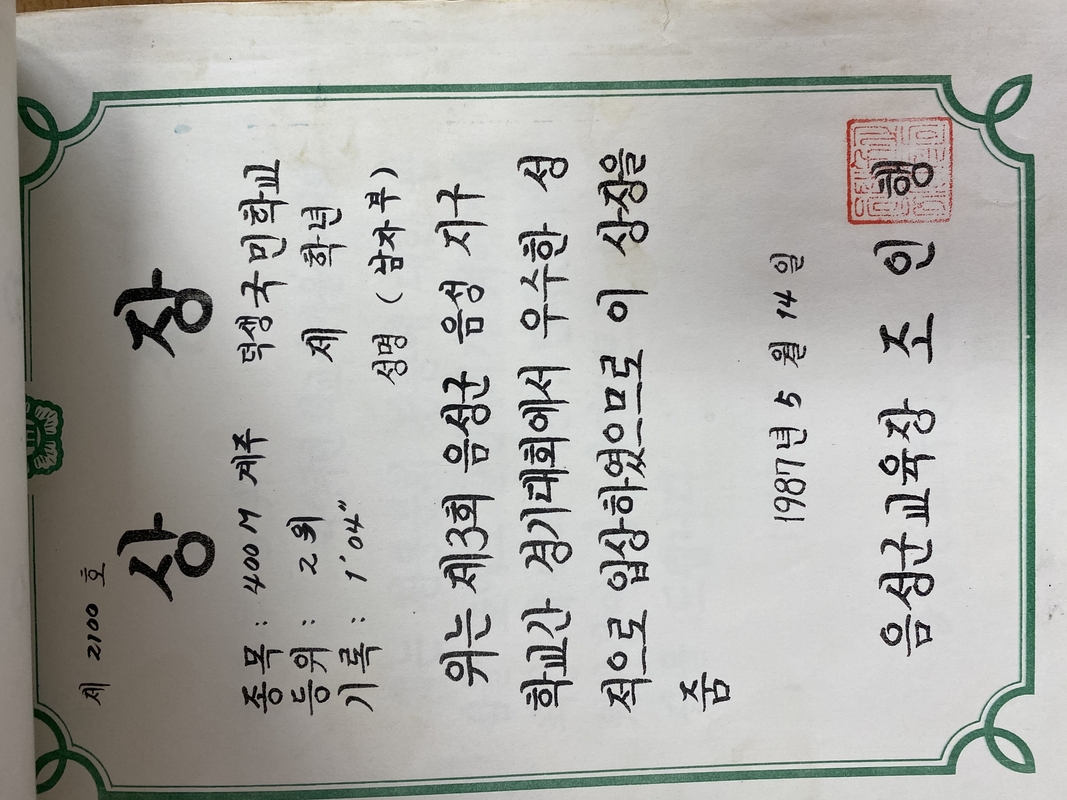 제 2100 호
상 장
종목 : 400M 계주 덕생국민학교
등위 : 2위 제 학년
기록 : 1'04" 성명 (남자부)
위는 제3회 음성군 음성 지구
학교간 경기대회에서 우수한 성
적으로 입상하였으므로 이 상장을
줌
1987년 5월 14일
음성군교육장 조인행